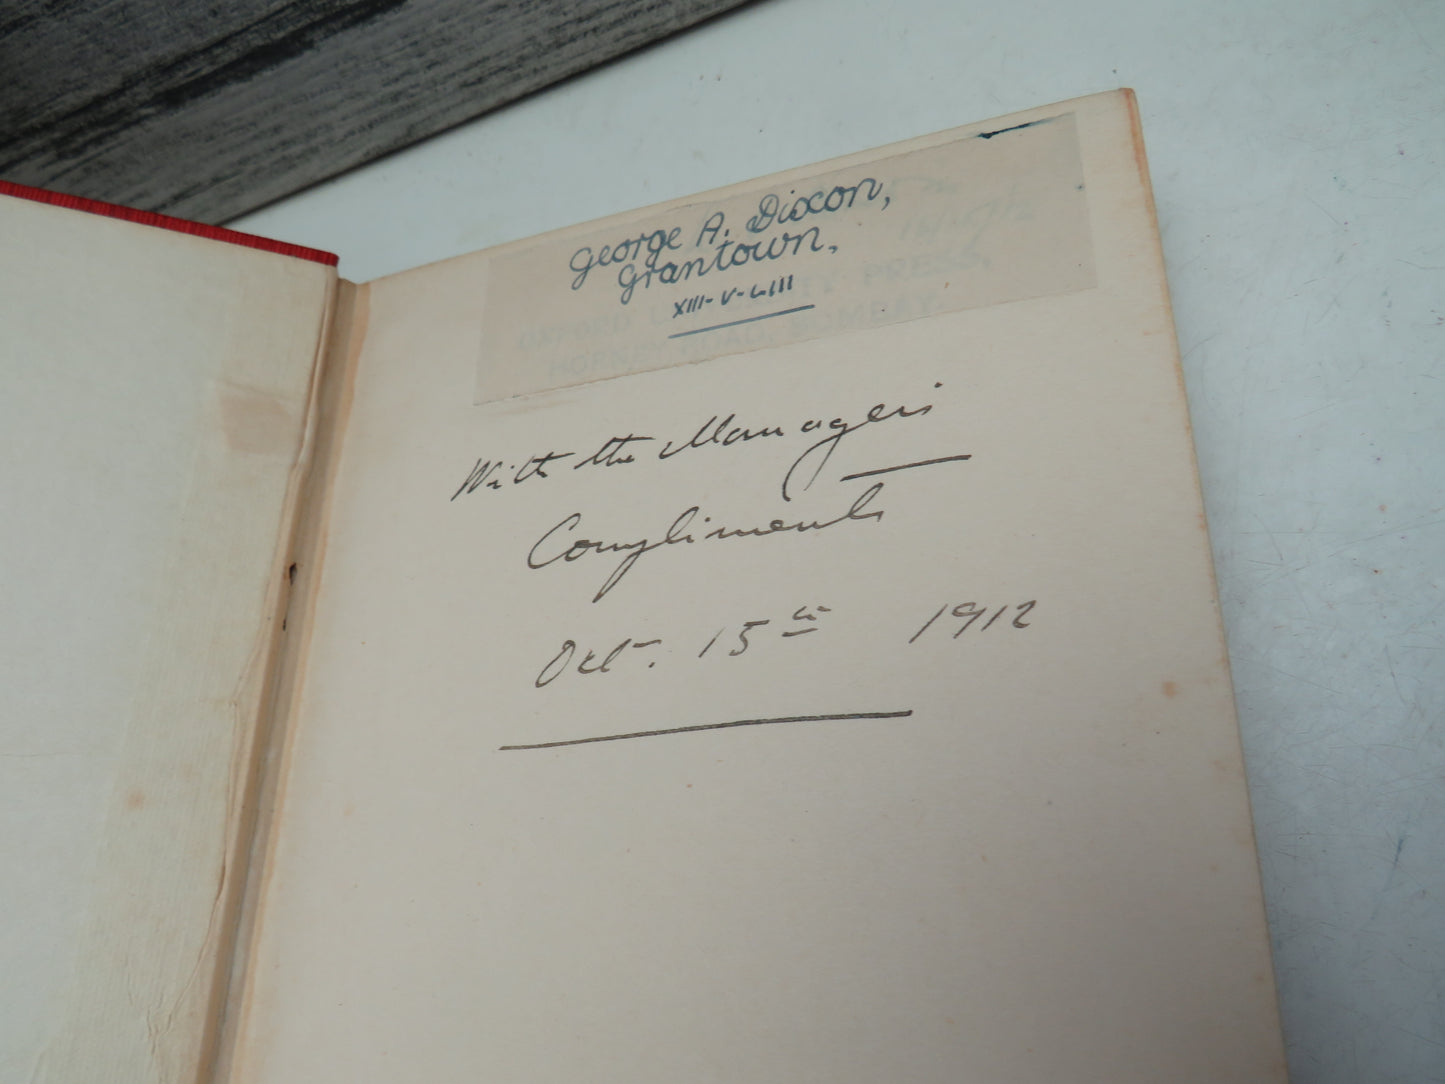 George A. Dixon,
Grantown.
XIII-V-LIII
OXFORD UNIVERSITY PRESS,
HORNBY ROAD, BOMBAY.
With the Managers
Compliments
Oct. 15th 1912